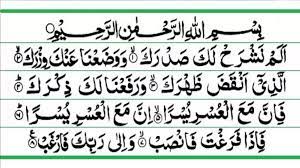 بِسْمِ اللّٰهِ الرَّحْمٰنِ الرَّحِيْمِ
اَلَمْ نَشْرَحْ لَكَ صَدْرَكَ ۙ۝۱ وَوَضَعْنَا عَنْكَ وِزْرَكَ ۙ۝۲
الَّذِيْۤ اَنْقَضَ ظَهْرَكَ ۙ۝۳ وَرَفَعْنَا لَكَ ذِكْرَكَ ؕ۝۴
فَاِنَّ مَعَ الْعُسْرِ يُسْرًا ۙ۝۵ اِنَّ مَعَ الْعُسْرِ يُسْرًا ؕ۝۶
فَاِذَا فَرَغْتَ فَانْصَبْ ۙ۝۷ وَاِلٰى رَبِّكَ فَارْغَبْ ۝۸